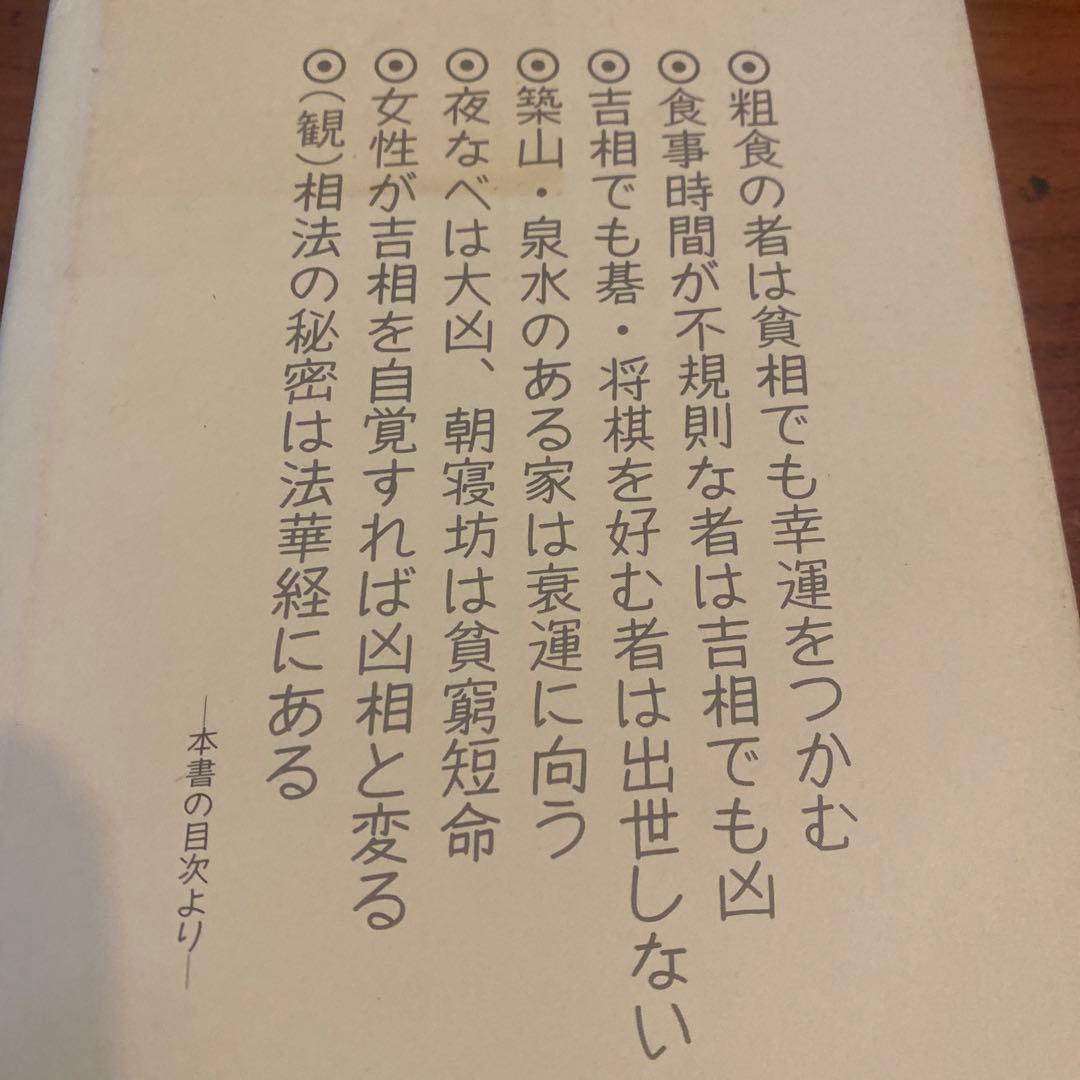 ◉粗食の者は貧相でも幸運をつかむ
◉食事時間が不規則な者は吉相でも凶
◉吉相でも碁・将棋を好む者は出世しない
◉築山・泉水のある家は衰運に向う
◉夜なべは大凶、朝寝坊は貧窮短命
◉女性が吉相を自覚すれば凶相と変る
◉(観)相法の秘密は法華経にある
―本書の目次より―